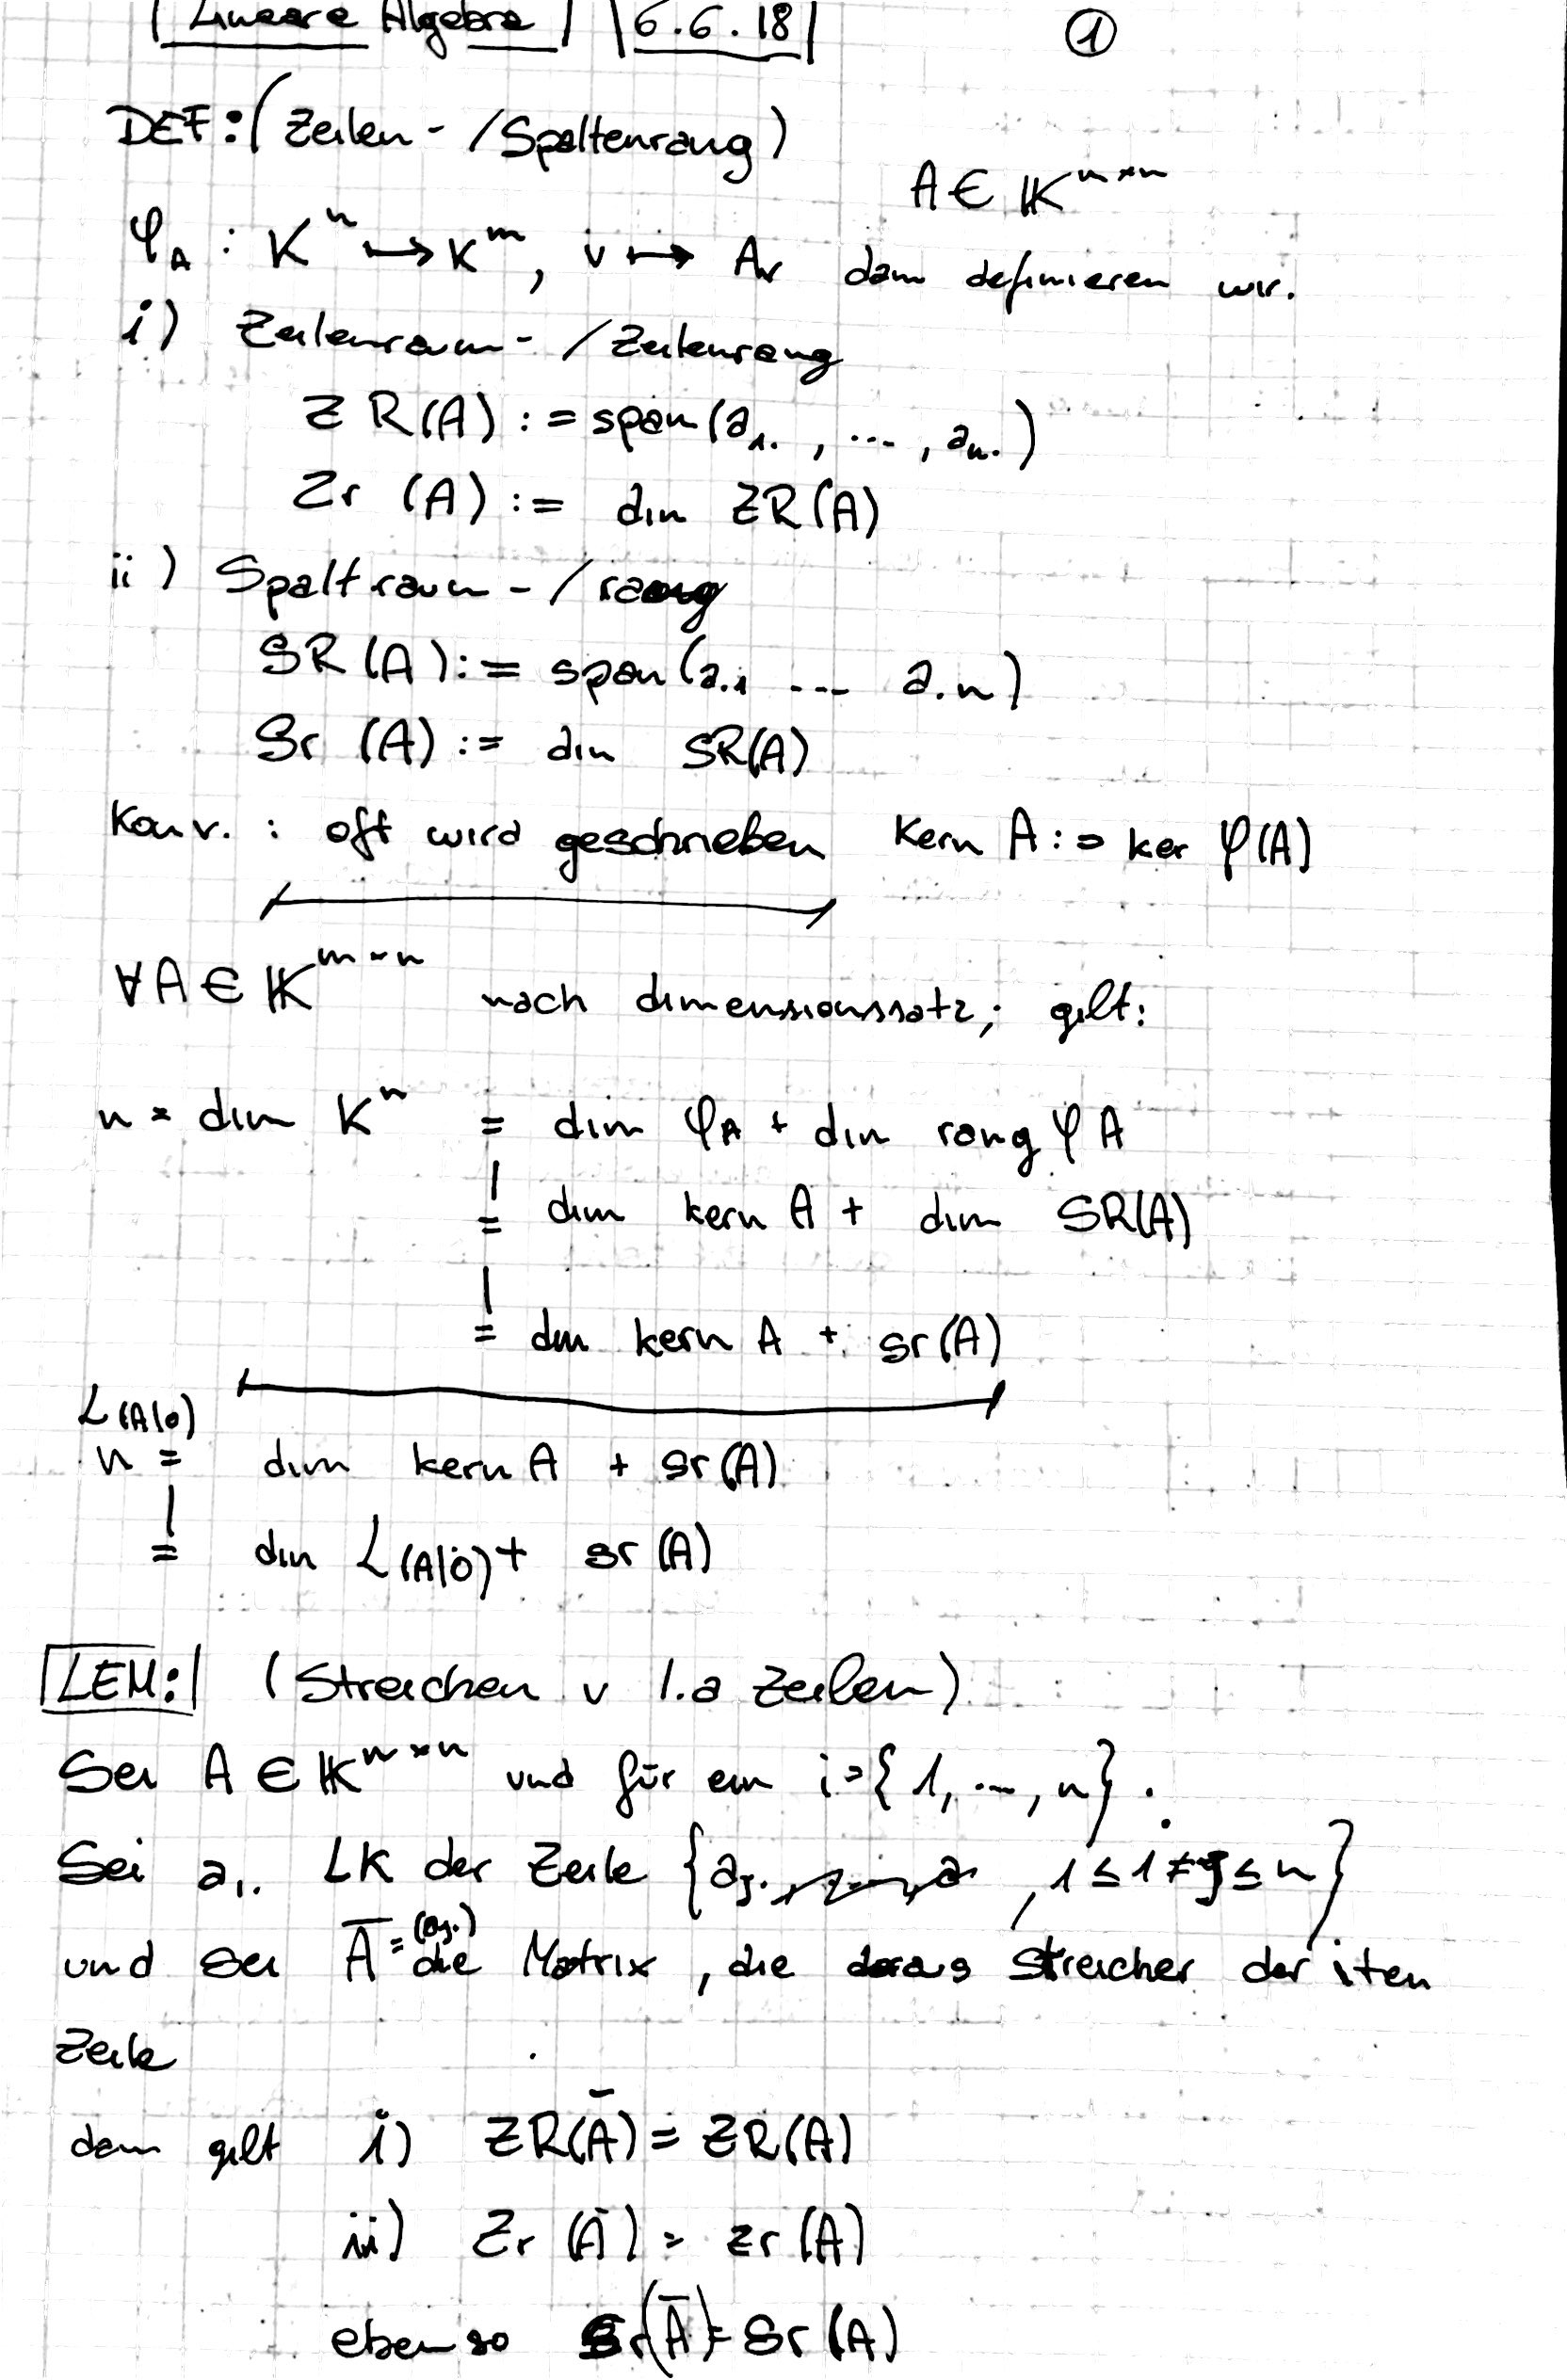 Lineare Algebra 6.6.18 ①
DEF: (Zeilen - / Spaltenrang)
A ∈ K^{m×n}
φ_A : K^n ↦ K^m, v ↦ Av dann definieren wir.
i) Zeilenraum - / Zeilenrang
ZR(A) := span(a_{1.}, ..., a_{n.})
Zr (A) := dim ZR(A)
ii) Spaltraum - / rang
SR(A) := span(a_{.1} --- a_{.n})
Sr (A) := dim SR(A)
Konv. : oft wird geschrieben Kern A := ker φ(A)
∀A ∈ K^{m×n} nach dimensionssatz; gilt:
n = dim K^n = dim φ_A + dim rang φ A
= dim kern A + dim SR(A)
= dim kern A + sr(A)
L(A|0)
n = dim kern A + sr(A)
= dim L(A|0) + sr(A)
LEM: (Streichen v l.a Zeilen)
Sei A ∈ K^{m×n} und für ein i={1, ..., n}.
Sei a_{1.} LK der Zeile {a_{j.} , 1 ≤ 1 ≠ j ≤ n}
und sei Ā = (a_{j.}) die Matrix, die daraus streicher der iten
Zeile
dann gilt i) ZR(Ā) = ZR(A)
iii) Zr (Ā) = zr (A)
ebenso Sr(Ā) = Sr(A)